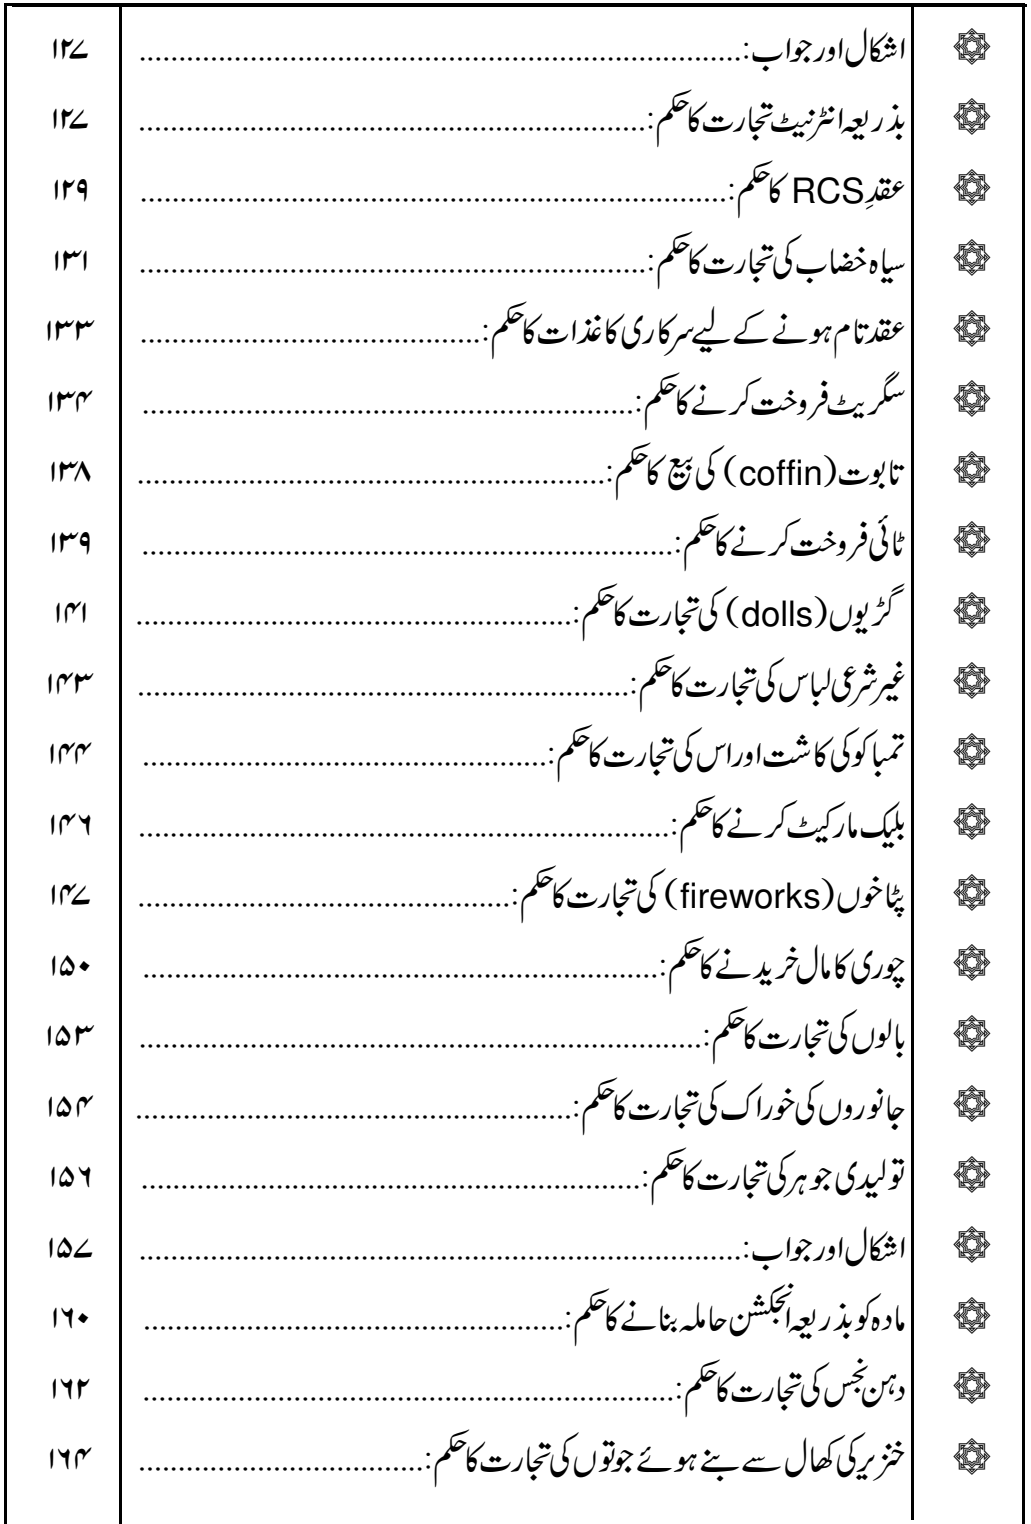 اشکال اور جواب: ........ ۱۲۷
بذریعہ انٹرنیٹ تجارت کا حکم: ........ ۱۲۷
عقدِ RCS کا حکم: ........ ۱۲۹
سیاہ خضاب کی تجارت کا حکم: ........ ۱۳۱
عقد تام ہونے کے لیے سرکاری کاغذات کا حکم: ........ ۱۳۳
سگریٹ فروخت کرنے کا حکم: ........ ۱۳۴
تابوت (coffin) کی بیع کا حکم: ........ ۱۳۸
ٹائی فروخت کرنے کا حکم: ........ ۱۳۹
گڑیوں (dolls) کی تجارت کا حکم: ........ ۱۴۱
غیر شرعی لباس کی تجارت کا حکم: ........ ۱۴۳
تمباکو کی کاشت اور اس کی تجارت کا حکم: ........ ۱۴۴
بلیک مارکیٹ کرنے کا حکم: ........ ۱۴۶
پٹاخوں (fireworks) کی تجارت کا حکم: ........ ۱۴۷
چوری کا مال خریدنے کا حکم: ........ ۱۵۰
بالوں کی تجارت کا حکم: ........ ۱۵۳
جانوروں کی خوراک کی تجارت کا حکم: ........ ۱۵۴
تولیدی جوہر کی تجارت کا حکم: ........ ۱۵۶
اشکال اور جواب: ........ ۱۵۷
مادہ کو بذریعہ انجکشن حاملہ بنانے کا حکم: ........ ۱۶۰
دہن نجس کی تجارت کا حکم: ........ ۱۶۲
خنزیر کی کھال سے بنے ہوئے جوتوں کی تجارت کا حکم: ........ ۱۶۴